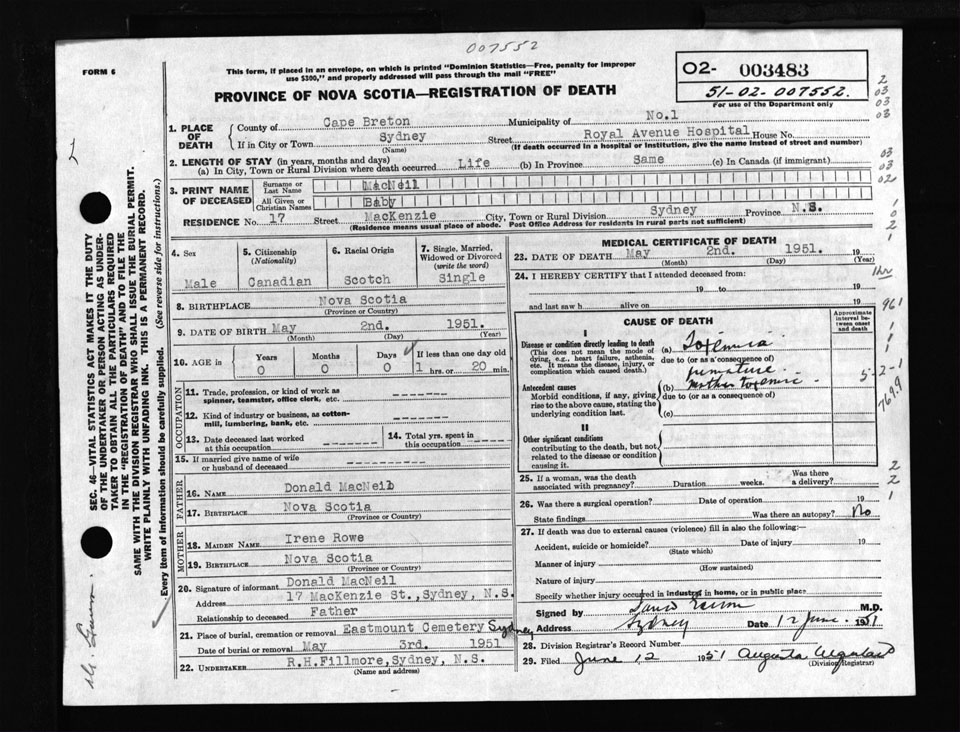 007552
FORM 6
This form, if placed in an envelope, on which is printed "Dominion Statistics—Free, penalty for improper
use $300," and properly addressed will pass through the mail "FREE"
PROVINCE OF NOVA SCOTIA—REGISTRATION OF DEATH
02- 003483
51-02-007552.
For use of the Department only
1. PLACE OF DEATH
County of Cape Breton Municipality of No.1
If in City or Town Sydney Street Royal Avenue Hospital House No.
(Name) (If death occurred in a hospital or institution, give the name instead of street and number)
2. LENGTH OF STAY (in years, months and days)
(a) In City, Town or Rural Division where death occurred Life (b) In Province Same (c) In Canada (if immigrant)
3. PRINT NAME OF DECEASED
Surname or Last Name MacNeil
All Given or Christian Names Baby
RESIDENCE No. 17 Street MacKenzie City, Town or Rural Division Sydney Province N.S.
(Residence means usual place of abode. Post Office Address for residents in rural parts not sufficient)
4. Sex Male
5. Citizenship (Nationality) Canadian
6. Racial Origin Scotch
7. Single, Married, Widowed or Divorced (write the word) Single
8. BIRTHPLACE Nova Scotia
(Province or Country)
9. DATE OF BIRTH May 2nd. 1951.
(Month) (Day) (Year)
10. AGE in Years Months Days If less than one day old
0 0 0 1 hrs. or 20 min.
OCCUPATION
11. Trade, profession, or kind of work as spinner, teamster, office clerk, etc. -------
12. Kind of industry or business, as cotton-mill, lumbering, bank, etc. -------
13. Date deceased last worked at this occupation -------
14. Total yrs. spent in this occupation ----
15. If married give name of wife or husband of deceased --------
FATHER
16. NAME Donald MacNeil
17. BIRTHPLACE Nova Scotia
(Province or Country)
MOTHER
18. MAIDEN NAME Irene Rowe
19. BIRTHPLACE Nova Scotia
(Province or Country)
20. Signature of informant Donald MacNeil
Address 17 MacKenzie St., Sydney, N.S.
Relationship to deceased Father
21. Place of burial, cremation or removal Eastmount Cemetery Sydney
Date of burial or removal May 3rd. 1951
22. UNDERTAKER R.H.Fillmore, Sydney, N.S.
(Name and address)
MEDICAL CERTIFICATE OF DEATH
23. DATE OF DEATH May 2nd. 1951. 19
(Month) (Day) (Year)
24. I HEREBY CERTIFY that I attended deceased from:
19 to 19
and last saw h alive on 19
1hr
961
CAUSE OF DEATH
Approximate interval between onset and death
I
Disease or condition directly leading to death (a) Toxemia
(This does not mean the mode of dying, e.g., heart failure, asthenia, etc. It means the disease, injury, or complication which caused death.)
due to (or as a consequence of)
premature
Antecedent causes (b) Mother toxemic
Morbid conditions, if any, giving rise to the above cause, stating the underlying condition last.
due to (or as a consequence of)
(c)
5-2-1
7699
II
Other significant conditions
contributing to the death, but not related to the disease or condition causing it.
25. If a woman, was the death associated with pregnancy? Duration weeks. Was there a delivery?
26. Was there a surgical operation? Date of operation 19
State findings Was there an autopsy? No
27. If death was due to external causes (violence) fill in also the following:—
Accident, suicide or homicide? Date of injury 19
(State which)
Manner of injury
(How sustained)
Nature of injury
Specify whether injury occurred in industry, in home, or in public place
Signed by M.D.
Address Sydney Date 12 June. 1951
28. Division Registrar's Record Number
29. Filed June 12 1951 Augusta
(Division Registrar)
SEC. 46—VITAL STATISTICS ACT MAKES IT THE DUTY
OF THE UNDERTAKER OR PERSON ACTING AS UNDER-
TAKER TO OBTAIN ALL THE PARTICULARS REQUIRED
IN THE "REGISTRATION OF DEATH" AND TO FILE THE
SAME WITH THE DIVISION REGISTRAR WHO SHALL ISSUE THE BURIAL PERMIT.
WRITE PLAINLY WITH UNFADING INK. THIS IS A PERMANENT RECORD.
Every item of information should be carefully supplied. (See reverse side for instructions.)